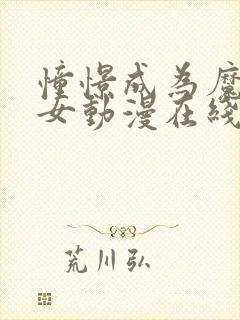 憧憬成為魔
女動漫在綫
荒川弘